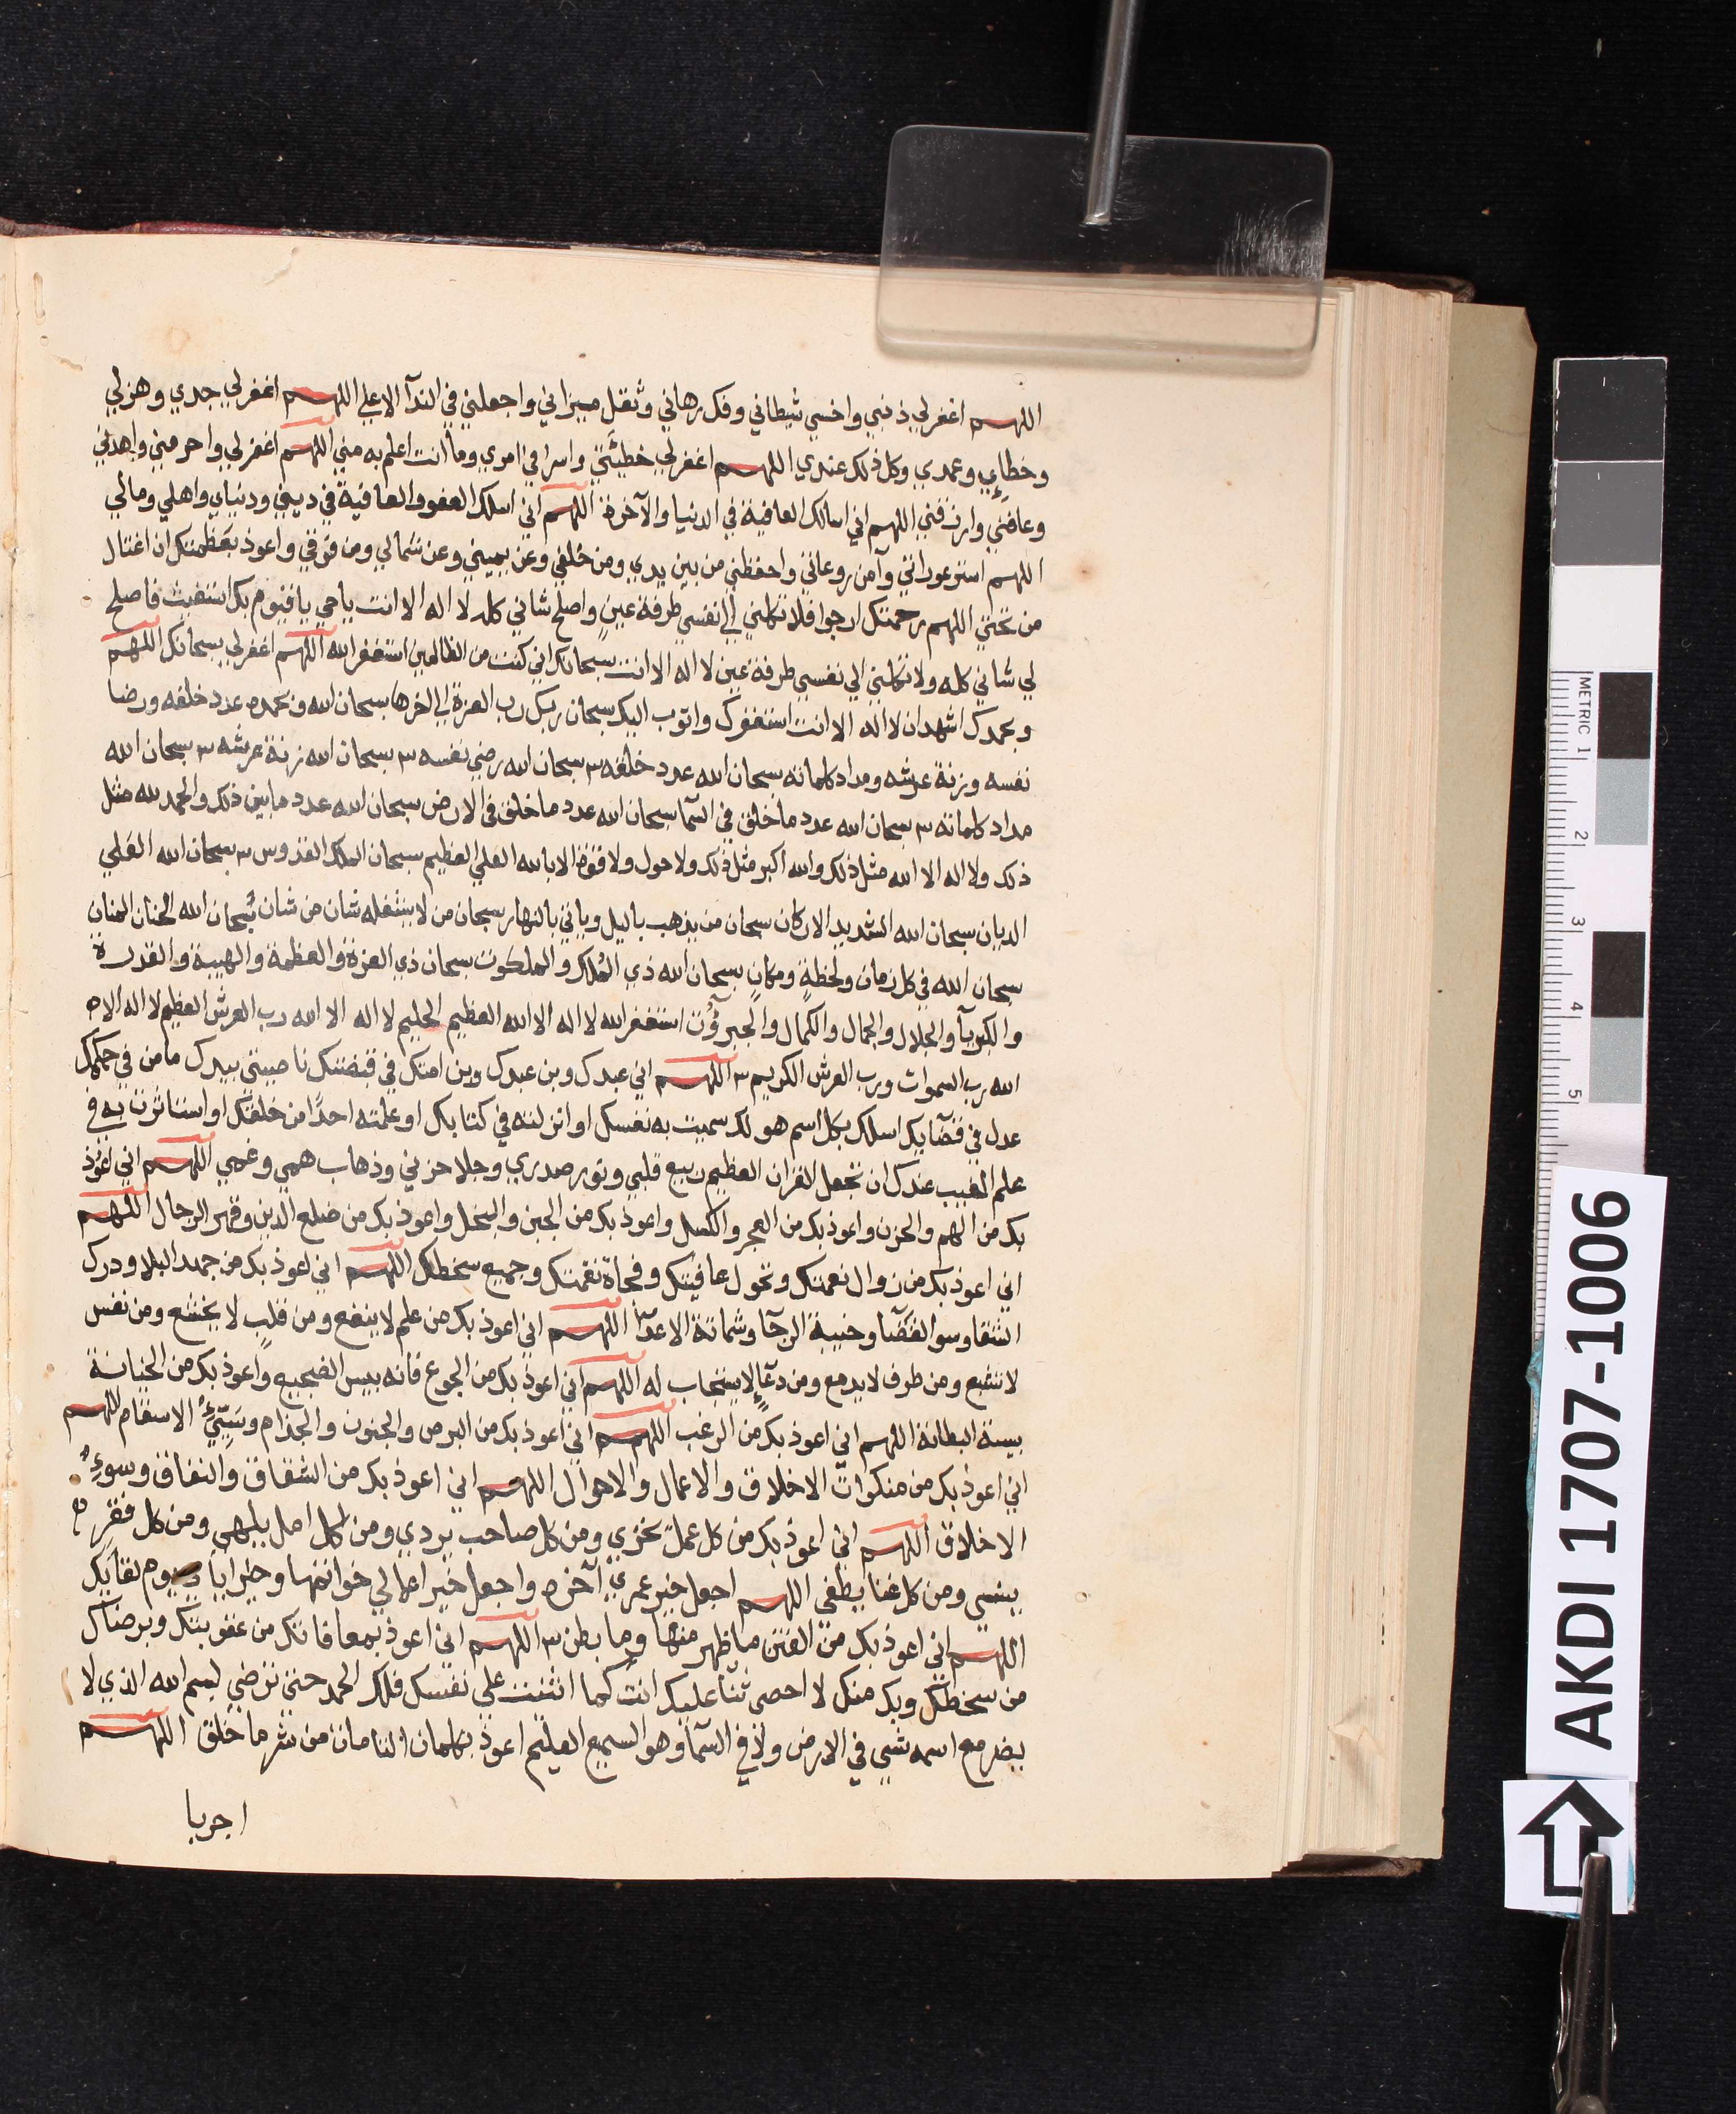 اللهم اغفر لي ذنبي واخسي شيطاني وفك رهاني وثقل ميزاني واجعلني في الندآ الاعلي اللهم اغفر لي جدي وهزلي
وخطاءي وعمدي وكل ذلك عندي اللهم اغفر لي خطيئتي واسرافي امري وما انت اعلم به مني اللهم اغفر لي وارحمني واهدني
وعافني وارزقني اللهم اني اسالك العافية في الدنيا والآخرة اللهم اني اسلك العفو والعافية في ديني ودنياي واهلي ومالي
اللهم استر عوراتي وآمن روعاتي واحفظني من بين يدي ومن خلفي وعن يميني وعن شمالي ومن فوقي واعوذ بعظمتك ان اغتال
من تحتي اللهم رحمتك ارجوا فلا تكلني الي نفسي طرفة عين واصلح شاني كله لا اله الا انت ياحي ياقيوم بك استغيث فاصلح
لي شاني كله ولا تكلني الي نفسي طرفة عين لا اله الا انت سبحانك اني كنت من الظالمين استغفر الله اللهم اغفر لي سبحانك اللهم
وبحمدك اشهد ان لا اله الا انت استغفرك واتوب اليك سبحان ربك رب العزة الي اخرها سبحان الله وبحمده عدد خلقه ورضا
نفسه وزنة عرشه ومداد كلماته سبحان الله عدد خلقه ٣ سبحان الله رضي نفسه ٣ سبحان الله زنة عرشه ٣ سبحان الله
مداد كلماته ٣ سبحان الله عدد ما خلق في السمآ سبحان الله عدد ما خلق في الارض سبحان الله عدد ما بين ذلك والحمد لله مثل
ذلك ولا اله الا الله مثل ذلك والله اكبر مثل ذلك ولا حول ولا قوة الا بالله العلي العظيم سبحان الملك القدوس ٣ سبحان الله العلي
الديان سبحان الله الشديد الاركان سبحان من يذهب باليل وياتي بالنهار سبحان من لا يشغله شان من شان سبحان الله الحنان المنان
سبحان الله في كل زمان ولحظةٍ ومكانٍ سبحان الله ذي الملك والملكوت سبحان ذي العزة والعظمة والهيبة والقدرة
والكبريآ والجلال والجمال والكمال والجبروت استغفر الله لا اله الا الله العظيم الحليم لا اله الا الله رب العرش العظيم لا اله الا ه
الله رب السموات ورب العرش الكريم ٣ اللهم اني عبدك وبن عبدك وبن امتك في قبضتك ناصيتي بيدك ماض في حكمك
عدل في قضآيك اسلك بكل اسم هو لك سميت به نفسك او انزلته في كتابك او علمته احدًا من خلقك او استاثرت به في
علم الغيب عندك ان تجعل القران العظيم ربيع قلبي ونور صدري وجلا حزني وذهاب همي وغمي اللهم اني اعوذ
بك من الهم والحزن واعوذ بك من العجز والكسل واعوذ بك من الجبن والبخل واعوذ بك من ضلع الدين وقهر الرجال اللهم
اني اعوذ بك من زوال نعمتك وتحول عافيتك وفجاة نقمتك وجميع سخطك اللهم اني اعوذ بك من جهد البلا ودرك
الشقا وسو القضآ وخيبة الرجآ وشماتة الاعدآ اللهم اني اعوذ بك من علم لا ينفع ومن قلبٍ لا يخشع ومن نفس
لا تشبع ومن طرف لا يدمع ومن دعآءٍ لا يستجاب له اللهم اني اعوذ بك من الجوع فانه بيس الضجيع واعوذ بك من الخيانة
بيست البطانة اللهم اني اعوذ بك من الرغب اللهم اني اعوذ بك من البرص والجنون والجذام وسَيّئ الاسقام اللهم
اني اعوذ بك من منكرات الاخلاق والاعمال والاحوال اللهم اني اعوذ بك من الشقاق والنفاق وسوءِ
الاخلاق اللهم اني اعوذ بك من كل عمل يخزي ومن كل صاحب يردي ومن كل امل يلهي ومن كل فقرٍ
ينسي ومن كل غنا يطغي اللهم اجعل خير عمري آخره واجعل خير اعمالي خواتمها وخير ايامي يوم لقايك
اللهم اني اعوذ بك من الفتن ما ظهر منها وما بطن ٣ اللهم اني اعوذ بمعافاتك من عقوبتك وبرضاك
من سخطك وبك منك لا احصي ثنآ عليك انت كما اثنيت علي نفسك فلك الحمد حتي ترضي بسم الله الذي لا
يضر مع اسمه شي في الارض ولا في السمآ وهو السميع العليم اعوذ بكلمات التامات من شر ما خلق اللهم
اجريا
METRIC 1
2
3
4
5
AKDI 1707-1006